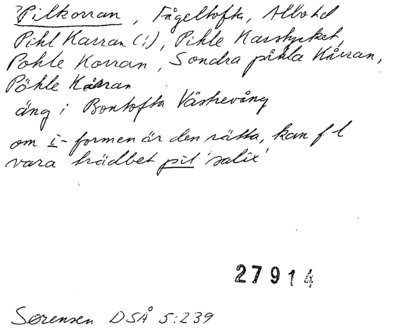 ?Pilkorran, Fågeltofta, Albo hd
Pihl Karran (!), Pihle Karstycket,
Pohle Korran, Söndra påhla Kårran,
Påhle Kårran
äng i Bontofta Västrevång
om i-formen är den rätta, kan f l
vara trädbet pil 'salix'
27914
Sørensen DSÅ 5:239